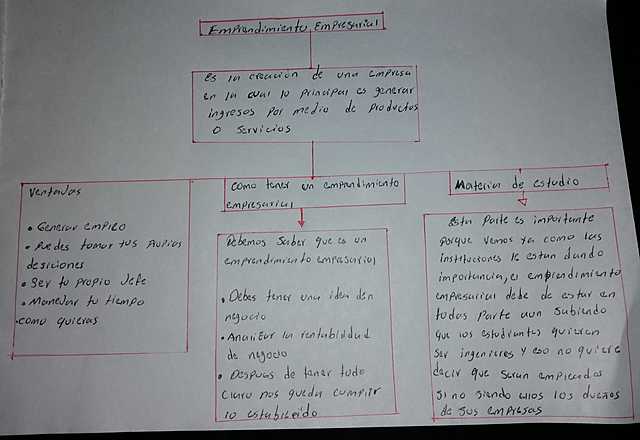 Emprendimiento Empresarial
Es la creación de una empresa
en la cual lo principal es generar
ingresos por medio de productos
o servicios
Ventajas
• Generar empleo
• Puedes tomar tus propias
desiciones
• Ser tu propio Jefe
• Manejar tu tiempo
como quieras
como tener un emprendimiento
empresarial
Debemos saber que es un
emprendimiento empresarial
• Debes tener una idea den
negocio
• Analizar la rentabilidad
de negocio
• Despues de tener todo
claro nos queda cumplir
lo establecido
Material de estudio
Esta parte es importante
porque vemos ya como las
instituciones le estan dando
importancia, el emprendimiento
empresarial debe de estar en
todas parte aun sabiendo
que los estudiantes quieren
ser ingenieros y eso no quiere
decir que seran empleados
si no siendo ellos los dueños
de sus empresas